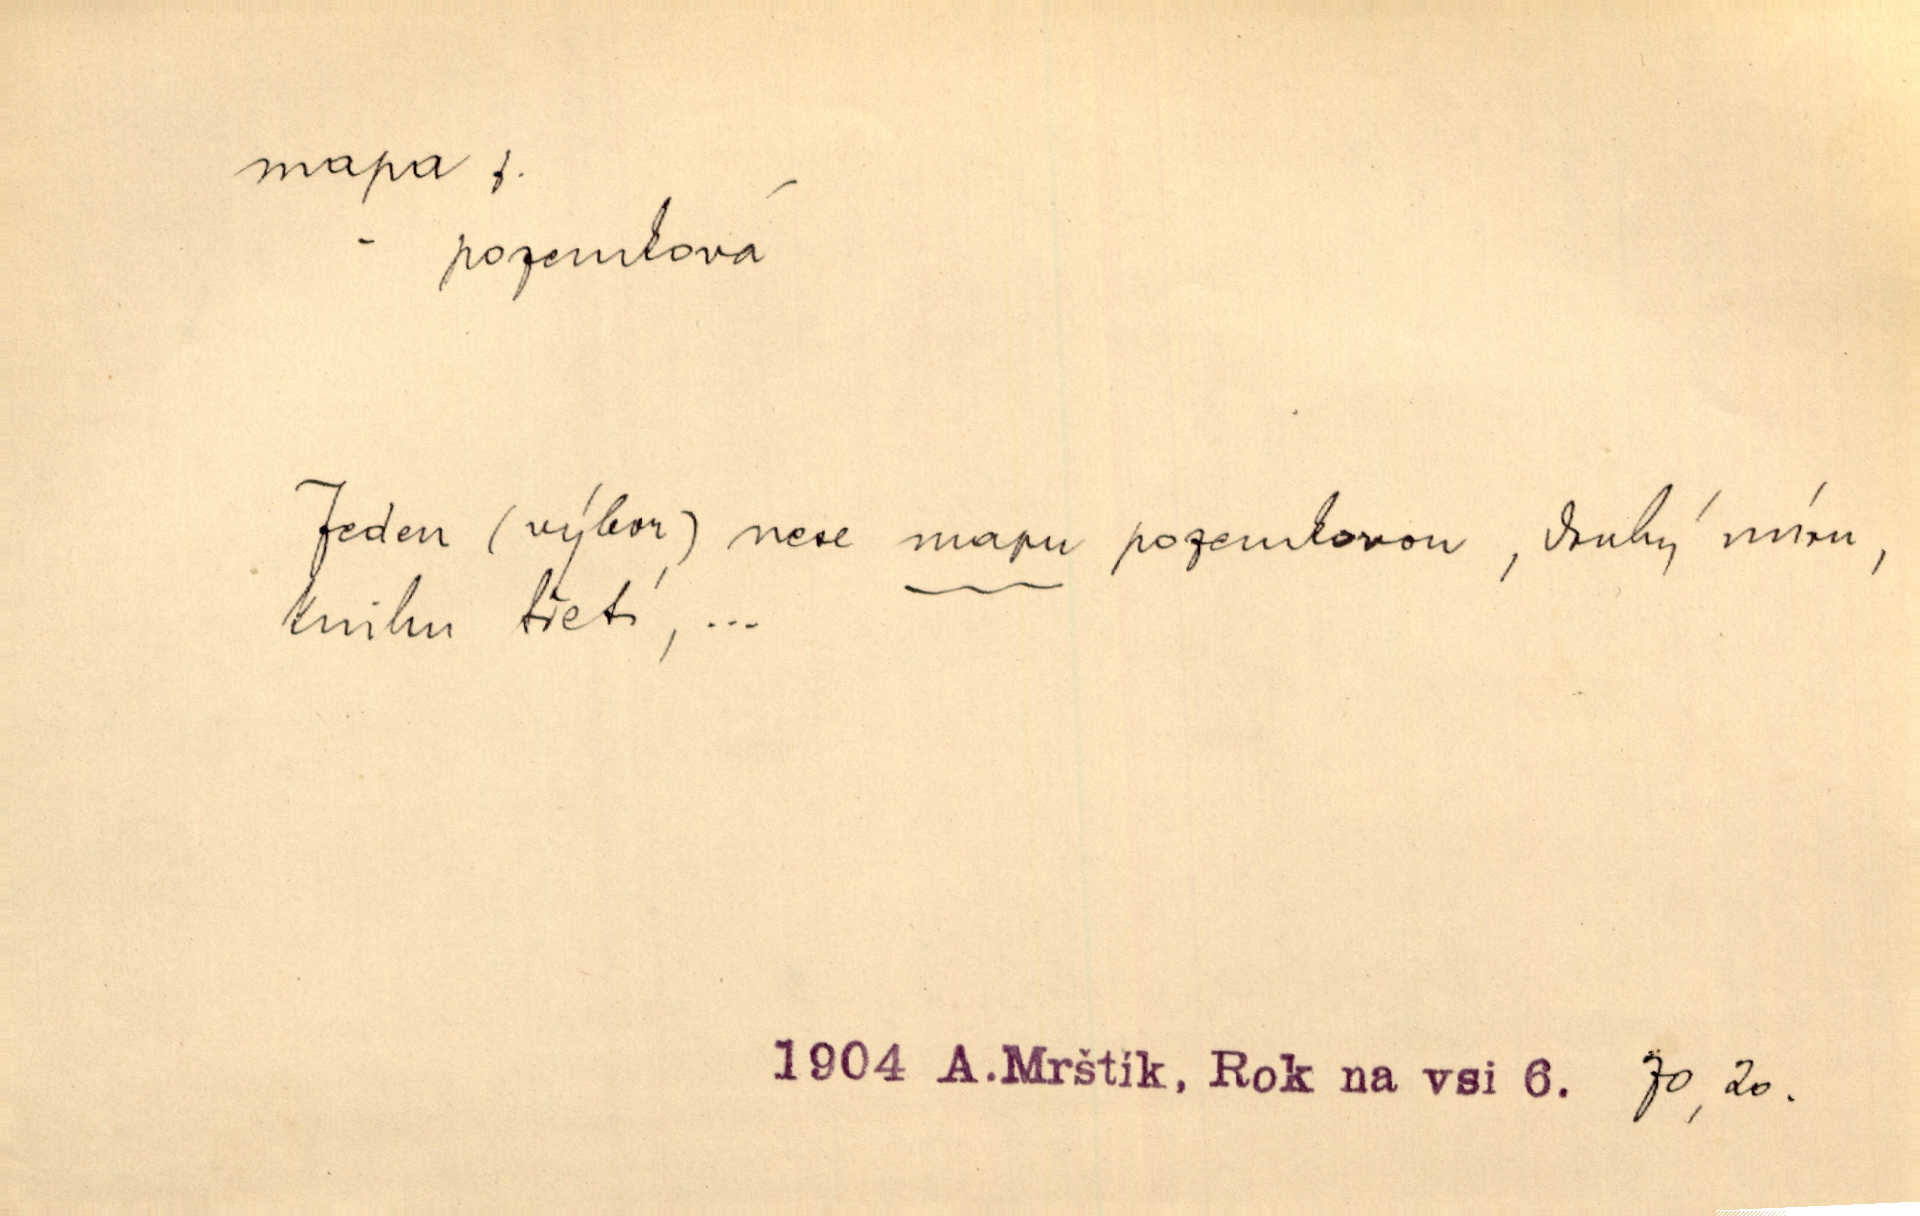 mapa f.
- pozemková
Jeden (výbor) nese mapu pozemkovou, druhý míru,
knihu třetí, ...
1904 A.Mrštík, Rok na vsi 6. 70, 20.